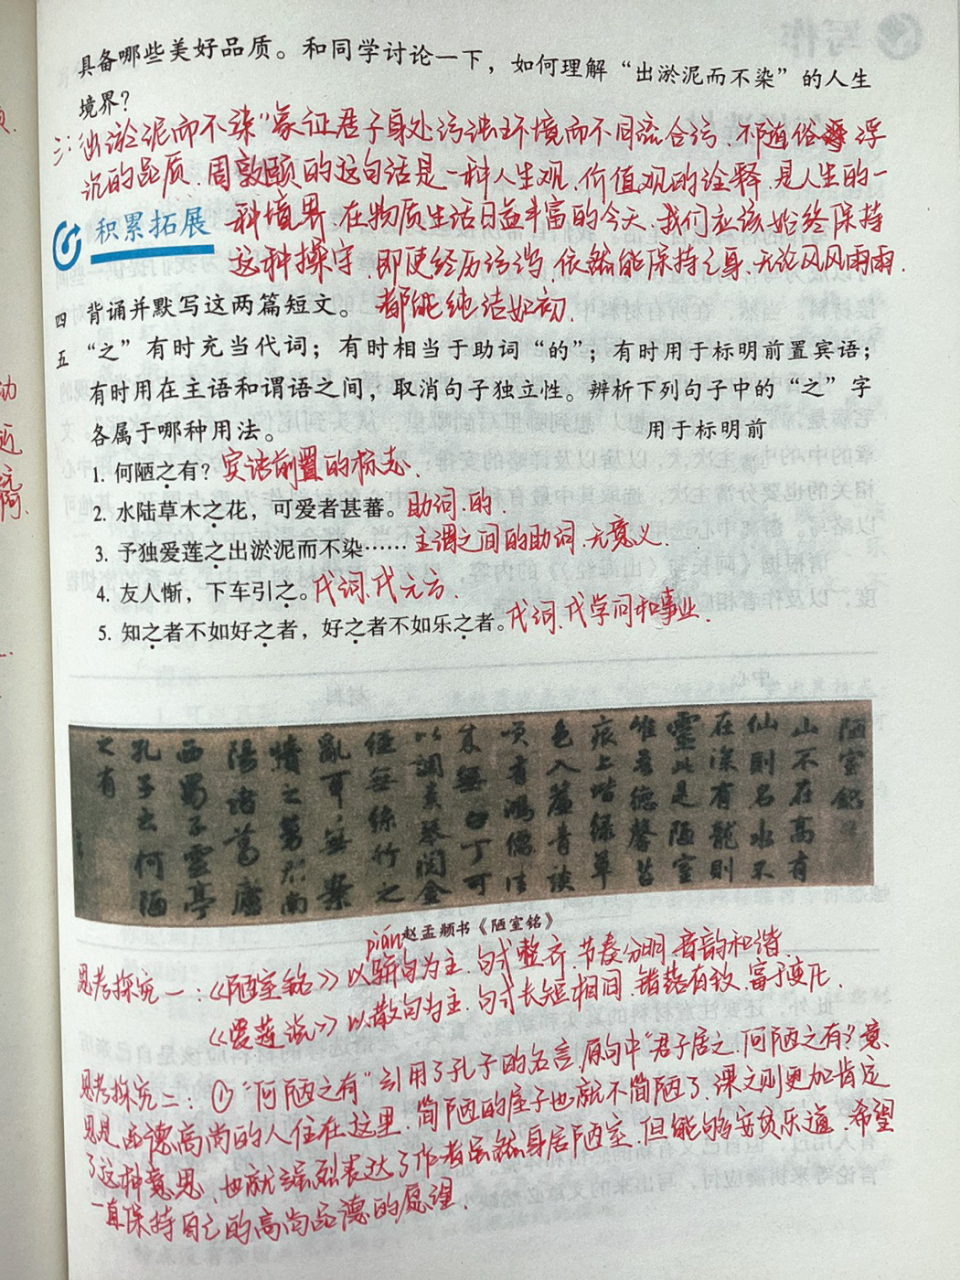 具备哪些美好品质。和同学讨论一下，如何理解“出淤泥而不染”的人生
境界？
三：“出淤泥而不染”象征君子身处污浊环境而不同流合污、不随俗浮
沉的品质。周敦颐的这句话是一种人生观、价值观的诠释，是人生的一
积累拓展
种境界。在物质生活日益丰富的今天，我们应该始终保持
这种操守，即使经历污浊，依然能保持之身，无论风风雨雨，
都能纯洁如初。
四 背诵并默写这两篇短文。
五 “之”有时充当代词；有时相当于助词“的”；有时用于标明前置宾语；
有时用在主语和谓语之间，取消句子独立性。辨析下列句子中的“之”字
各属于哪种用法。
用于标明前
1. 何陋之有？宾语前置的标志.
2. 水陆草木之花，可爱者甚蕃。助词.的.
3. 予独爱莲之出淤泥而不染…… 主谓之间的助词.无意义.
4. 友人惭，下车引之。代词.代元方.
5. 知之者不如好之者，好之者不如乐之者。代词.代学问和事业.
陋室铭
山不在高有
仙则名水不
在深有龙则
灵此是陋室
惟吾德馨苔
痕上阶绿草
色入帘青谈
笑有鸿儒往
来无白丁可
以调素琴阅金
经无丝竹之
乱耳无案
牍之劳形南
阳诸葛庐
西蜀子云亭
孔子云何陋
之有
赵孟頫书《陋室铭》
pián
思考探究一：《陋室铭》以骈句为主.句式整齐.节奏分明.音韵和谐.
《爱莲说》以散句为主.句式长短相间.错落有致.富于变化.
思考探究二：①“何陋之有”引用了孔子的名言.原句中“君子居之.何陋之有”.意
思是.品德高尚的人住在这里.简陋的屋子也就不简陋了.课文则更加肯定
了这种意思.也就强烈表达了作者虽然身居陋室.但能够安贫乐道.希望
一直保持自己的高尚品德的愿望.